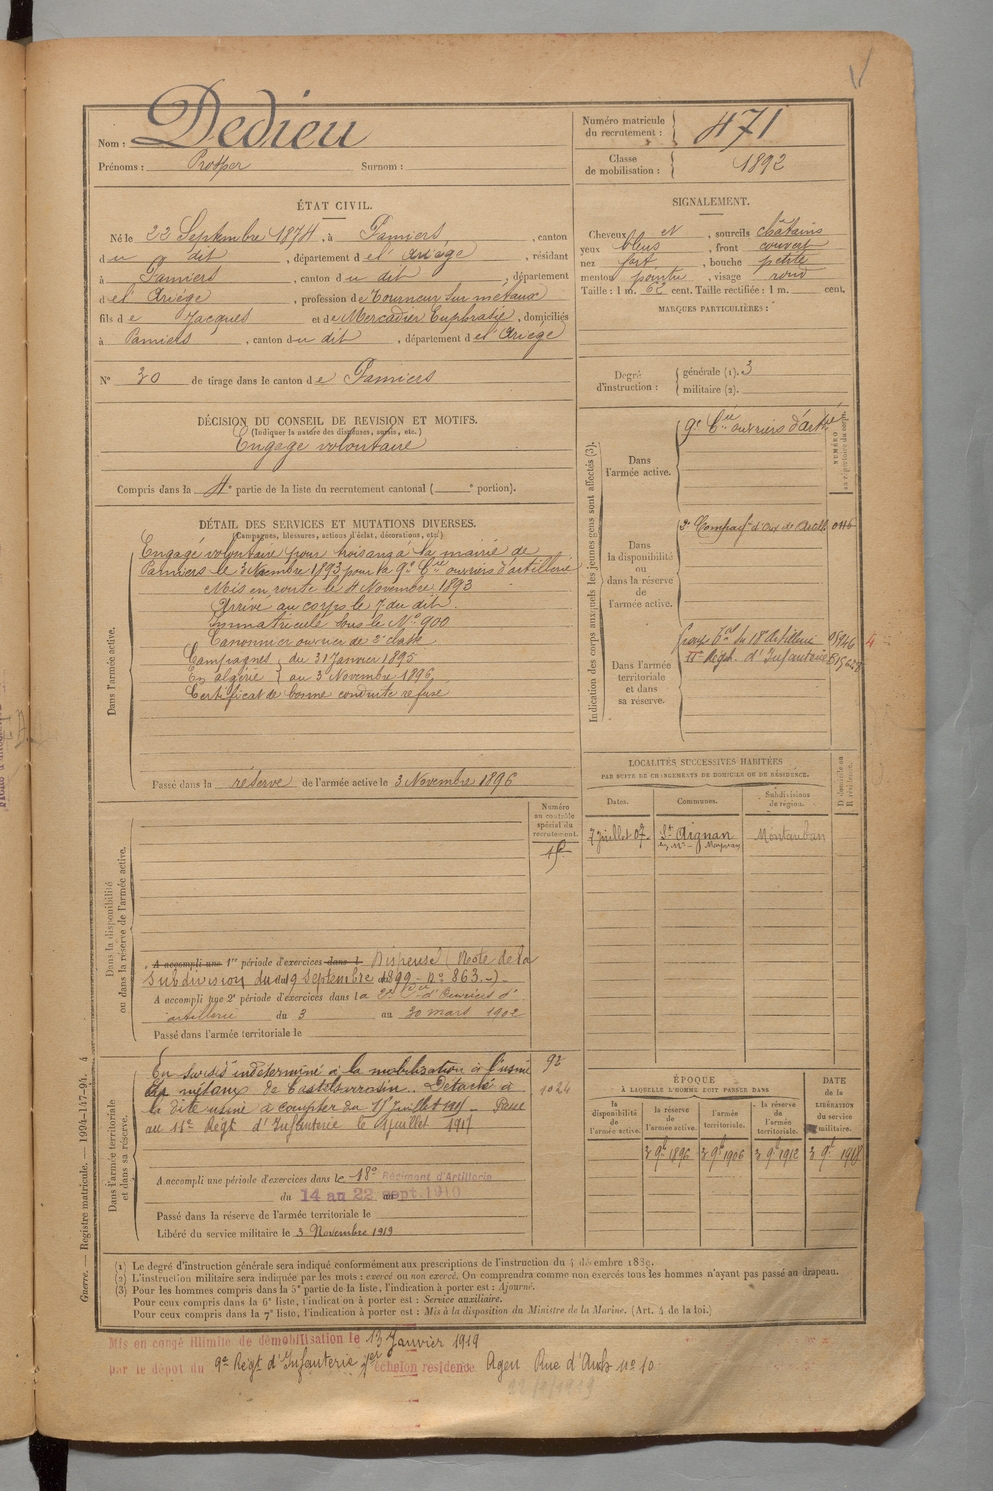 Nom : Dedieu
Prénoms : Prosper Surnom :
Numéro matricule du recrutement : 471
Classe de mobilisation : 1892
ÉTAT CIVIL.
Né le 22 Septembre 1874, à Pamiers, canton
du dit, département de l'Ariège, résidant
à Pamiers, canton du dit, département
de l'Ariège, profession de Tourneur sur métaux
fils de Jacques et de Mercadier Euphrasie, domiciliés
à Pamiers, canton du dit, département de l'Ariège
N° 30 de tirage dans le canton de Pamiers
SIGNALEMENT.
Cheveux et, sourcils châtains
yeux bleus, front couvert
nez fort, bouche petite
menton pointu, visage rond
Taille : 1 m. 62 cent. Taille rectifiée : 1 m. cent.
MARQUES PARTICULIÈRES :
Degré d'instruction : générale (1). 3
militaire (2).
DÉCISION DU CONSEIL DE REVISION ET MOTIFS.
(Indiquer la nature des dispenses, sursis, etc.)
Engagé volontaire
Compris dans la 4e partie de la liste du recrutement cantonal ( e portion).
DÉTAIL DES SERVICES ET MUTATIONS DIVERSES.
(Campagnes, blessures, actions d'éclat, décorations, etc.)
Dans l'armée active.
Engagé volontaire pour trois ans à la mairie de
Pamiers le 3 Novembre 1893 pour la 9e Cie ouvriers d'artillerie
Mis en route le 4 Novembre 1893
Arrivé au corps le 7 du dit.
Immatriculé sous le No 900
Canonnier ouvrier de 2e classe
Campagnes du 31 Janvier 1895
En algérie au 3 Novembre 1896
Certificat de bonne conduite refusé
Passé dans la réserve de l'armée active le 3 Novembre 1896
Indication des corps auxquels les jeunes gens sont affectés (3).
NUMÉRO au répertoire du corps.
Dans l'armée active.
9e Cie ouvriers d'artie
Dans la disponibilité ou dans la réserve de l'armée active.
Dans l'armée territoriale et dans sa réserve.
11e Régt. d'Infanterie
LOCALITÉS SUCCESSIVES HABITÉES
PAR SUITE DE CHANGEMENTS DE DOMICILE OU DE RÉSIDENCE.
Dates. Communes. Subdivisions de région. D domicile ou R résidence.
7 Juillet 07. St Aignan Montauban
Dans la disponibilité ou dans la réserve de l'armée active.
Numéro au contrôle spécial du recrutement.
A accompli une 1re période d'exercices dans l Dispensé (Note de la
Subdivision du 19 Septembre 1899 - No 863.)
A accompli une 2e période d'exercices dans la
artillerie du 3 au 30 mars 1902
Passé dans l'armée territoriale le
Dans l'armée territoriale et dans sa réserve.
En sursis indéterminé à la mobilisation à l'usine 92
à métaux de Castelsarrasin. Détaché à 1024
la dite usine à compter du 15 Juillet 1917 - Passé
au 11e Régt d'Infanterie le 1 Juillet 1917
A accompli une période d'exercices dans le 18e Régiment d'Artillerie
du 14 au 22 Sept. 1910
Passé dans la réserve de l'armée territoriale le
Libéré du service militaire le 3 Novembre 1919
ÉPOQUE
À LAQUELLE L'HOMME DOIT PASSER DANS
DATE DE LA LIBÉRATION du service militaire.
la disponibilité de l'armée active. la réserve de l'armée active. l'armée territoriale. la réserve de l'armée territoriale.
3 9bre 1896 3 9bre 1906 3 9bre 1912 3 9bre 1918
(1) Le degré d'instruction générale sera indiqué conformément aux prescriptions de l'instruction du 4 décembre 1889.
(2) L'instruction militaire sera indiquée par les mots : exercé ou non exercé. On comprendra comme non exercés tous les hommes n'ayant pas passé au drapeau.
(3) Pour les hommes compris dans la 5e partie de la liste, l'indication à porter est : Ajourné.
Pour ceux compris dans la 6e liste, l'indication à porter est : Service auxiliaire.
Pour ceux compris dans la 7e liste, l'indication à porter est : Mis à la disposition du Ministre de la Marine. (Art. 4 de la loi.)
Guerre. — Registre matricule. 1994-147-94. 4
Mis en congé illimité de démobilisation le 13 Janvier 1919
par le dépôt du 9e Régt d'Infanterie 1er échelon résidence Agen Rue d'Auch no 10